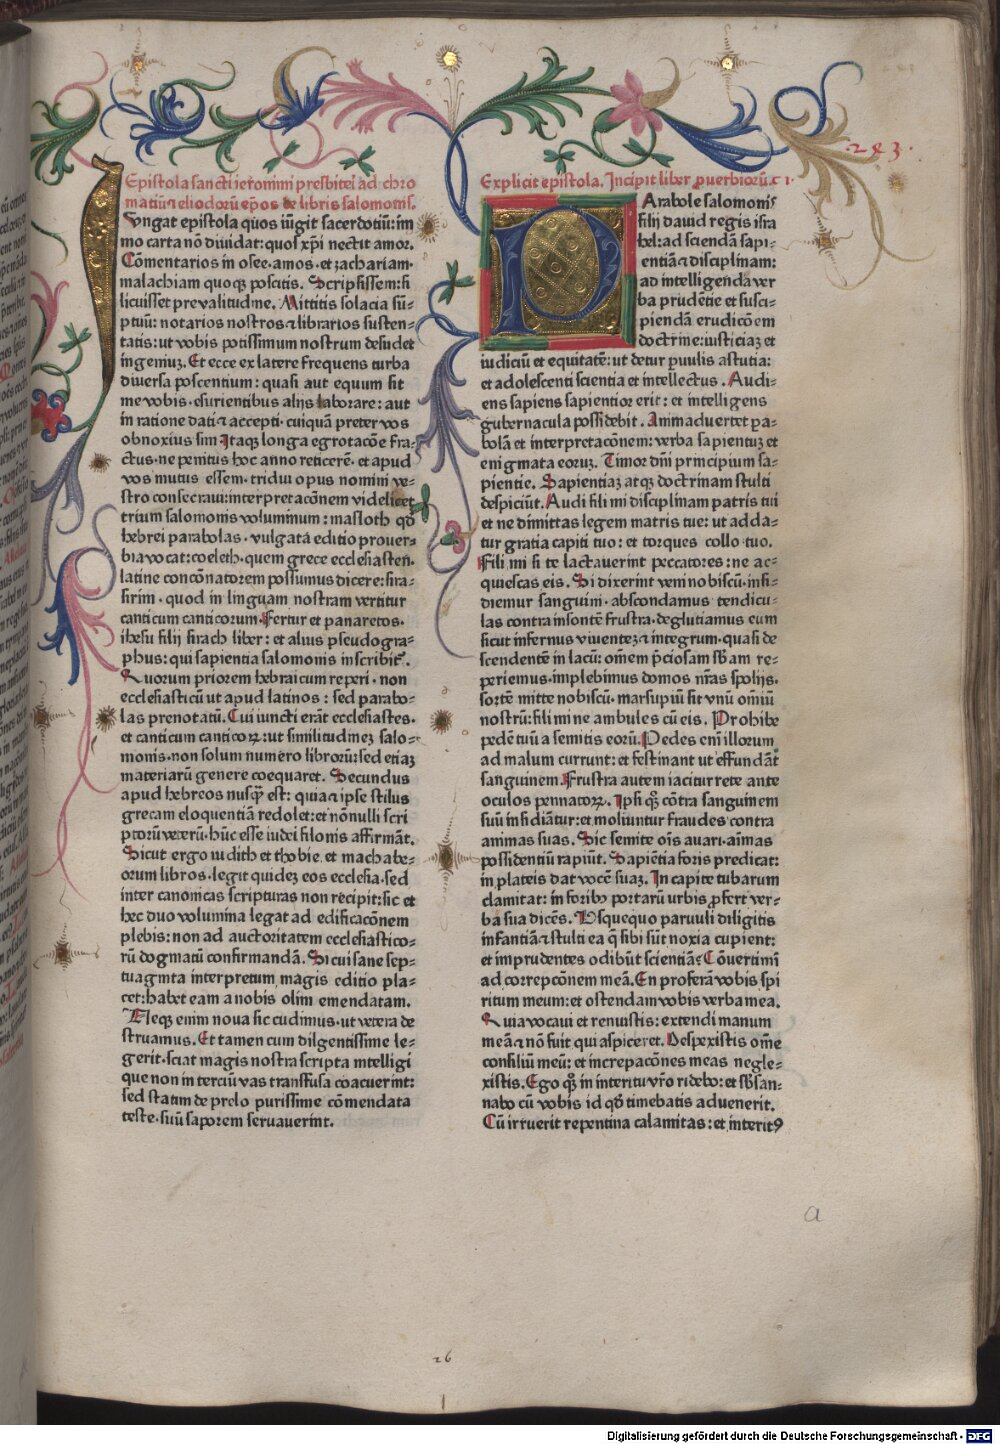 243.
Epistola sancti ieronimi presbiteri ad chro
matiū ⁊ eliodorū ep̄os de libris salomonis.
Iungat epistola quos iūgit sacerdotiū: im
mo carta nō diuidat: quos xp̄i nectit amor.
Cōmentarios in osee. amos. et zachariam.
malachiam quoqꝫ poscitis. Scripsissem: si
licuisset pre valitudine. Mittitis solacia sū-
ptuū: notarios nostros ⁊ librarios susten-
tatis: ut vobis potissimum nostrum desudet
ingeniuꝫ. Et ecce ex latere frequens turba
diuersa poscentium: quasi aut equum sit
me vobis. esurientibus alijs laborare: aut
in ratione dati ⁊ accepti. cuiquā preter vos
obnoxius sim. Itaqꝫ longa egrotacōe fra-
ctus. ne penitus hoc anno reticerē. et apud
vos mutus essem. tridui opus nomini ve-
stro consecraui: interpretacōnem videlicet
trium salomonis voluminum: masloth qđ
hebrei parabolas. vulgata editio prouer-
bia vocat: coeleth. quem grece ecclesiasten.
latine concōnatorem possumus dicere: sira-
sirim. quod in linguam nostram vertitur
canticum canticorum. Fertur et panaretos.
ihesu filij sirach liber: et alius pseudogra-
phus: qui sapientia salomonis inscribit᷒.
Quorum priorem hebraicum reperi. non
ecclesiasticū ut apud latinos: sed parabo-
las prenotatū. Cui iuncti erāt ecclesiastes.
et canticum canticoꝝ: ut similitudineꝫ salo-
monis. non solum numero librorū: sed etiaꝫ
materiarū genere coequaret. Secundus
apud hebreos nusqꝫ̄ est: quia ⁊ ipse stilus
grecam eloquentiā redolet: et nōnulli scri
ptorū veterū. hūc esse iudei filonis affirmāt.
Sicut ergo iudith et thobie. et machabe-
orum libros. legit quideꝫ eos ecclesia. sed
inter canonicas scripturas non recipit: sic et
hec duo volumina legat ad edificacōnem
plebis: non ad auctoritatem ecclesiastico-
rū dogmatū confirmandā. Si cui sane sep-
tuaginta interpretum magis editio pla-
cet: habet eam a nobis olim emendatam.
Neqꝫ enim noua sic cudimus. ut vetera de
struamus. Et tamen cum diligentissime le-
gerit. sciat magis nostra scripta intelligi
que non in terciū vas transfusa coacuerint:
sed statim de prelo purissime cōmendata
teste. suū saporem seruauerint.
Explicit epistola. Incipit liber ꝓuerbiorū. c̄ 1.
Parabole salomonis
filij dauid regis isra
hel: ad sciendā sapi-
entiā ⁊ disciplinam:
ad intelligenda ver
ba prudētie et susci-
piendā erudicōem
doctrine: iusticiaꝫ et
iudiciū et equitatē: ut detur ꝑuulis astutia:
et adolescenti scientia et intellectus. Audi-
ens sapiens sapientior erit: et intelligens
gubernacula possidebit. Animaduertet pa-
bolā et interpretacōnem: verba sapientuꝫ et
enigmata eoruꝫ. Timor dn̄i principium sa-
pientie. Sapientiaꝫ atqꝫ doctrinam stulti
despiciūt. Audi fili mi disciplinam patris tui
et ne dimittas legem matris tue: ut adda-
tur gratia capiti tuo: et torques collo tuo.
Fili mi si te lactauerint peccatores: ne ac-
quiescas eis. Si dixerint veni nobiscū. insi-
diemur sanguini. abscondamus tendicu-
las contra insontē frustra. deglutiamus eum
sicut infernus viuenteꝫ ⁊ integrum. quasi de
scendentē in lacū: om̄em p̄ciosam sb̄am re-
periemus. implebimus domos nr̄as spolijs.
sortē mitte nobiscū. marsupiū sit vnū om̄iū
nostrū: fili mi ne ambules cū eis. Prohibe
pedē tuū a semitis eorū. Pedes eni illorum
ad malum currunt: et festinant ut effundāt
sanguinem. Frustra autem iacitur rete ante
oculos pennatoꝝ. Ipsi qꝫ cōtra sanguinem
suū insidiātur: et moliuntur fraudes contra
animas suas. Sic semite om̄is auari. aīmas
possidentiū rapiūt. Sapiētia foris predicat:
in plateis dat vocē suaꝫ. In capite turbarum
clamitat: in foribꝫ portarū urbis ꝓfert ver-
ba sua dicēs. Usquequo paruuli diligitis
infantiā ⁊ stulti ea q̄ sibi sūt noxia cupient:
et imprudentes odibūt scientiā? Cōuertimī
ad correpcōnem meā. En proferā vobis spi
ritum meum: et ostendam vobis verba mea.
Quia vocaui et renuistis: extendi manum
meā ⁊ nō fuit qui aspiceret. Despexistis om̄e
consiliū meū: et increpacōnes meas negle-
xistis. Ego qꝫ in interitu vr̄o ridebo: et sb̄san-
nabo cū vobis id qđ timebatis aduenerit.
Cū irruerit repentina calamitas: et interitꝰ
a
26
Digitalisierung gefördert durch die Deutsche Forschungsgemeinschaft - DFG